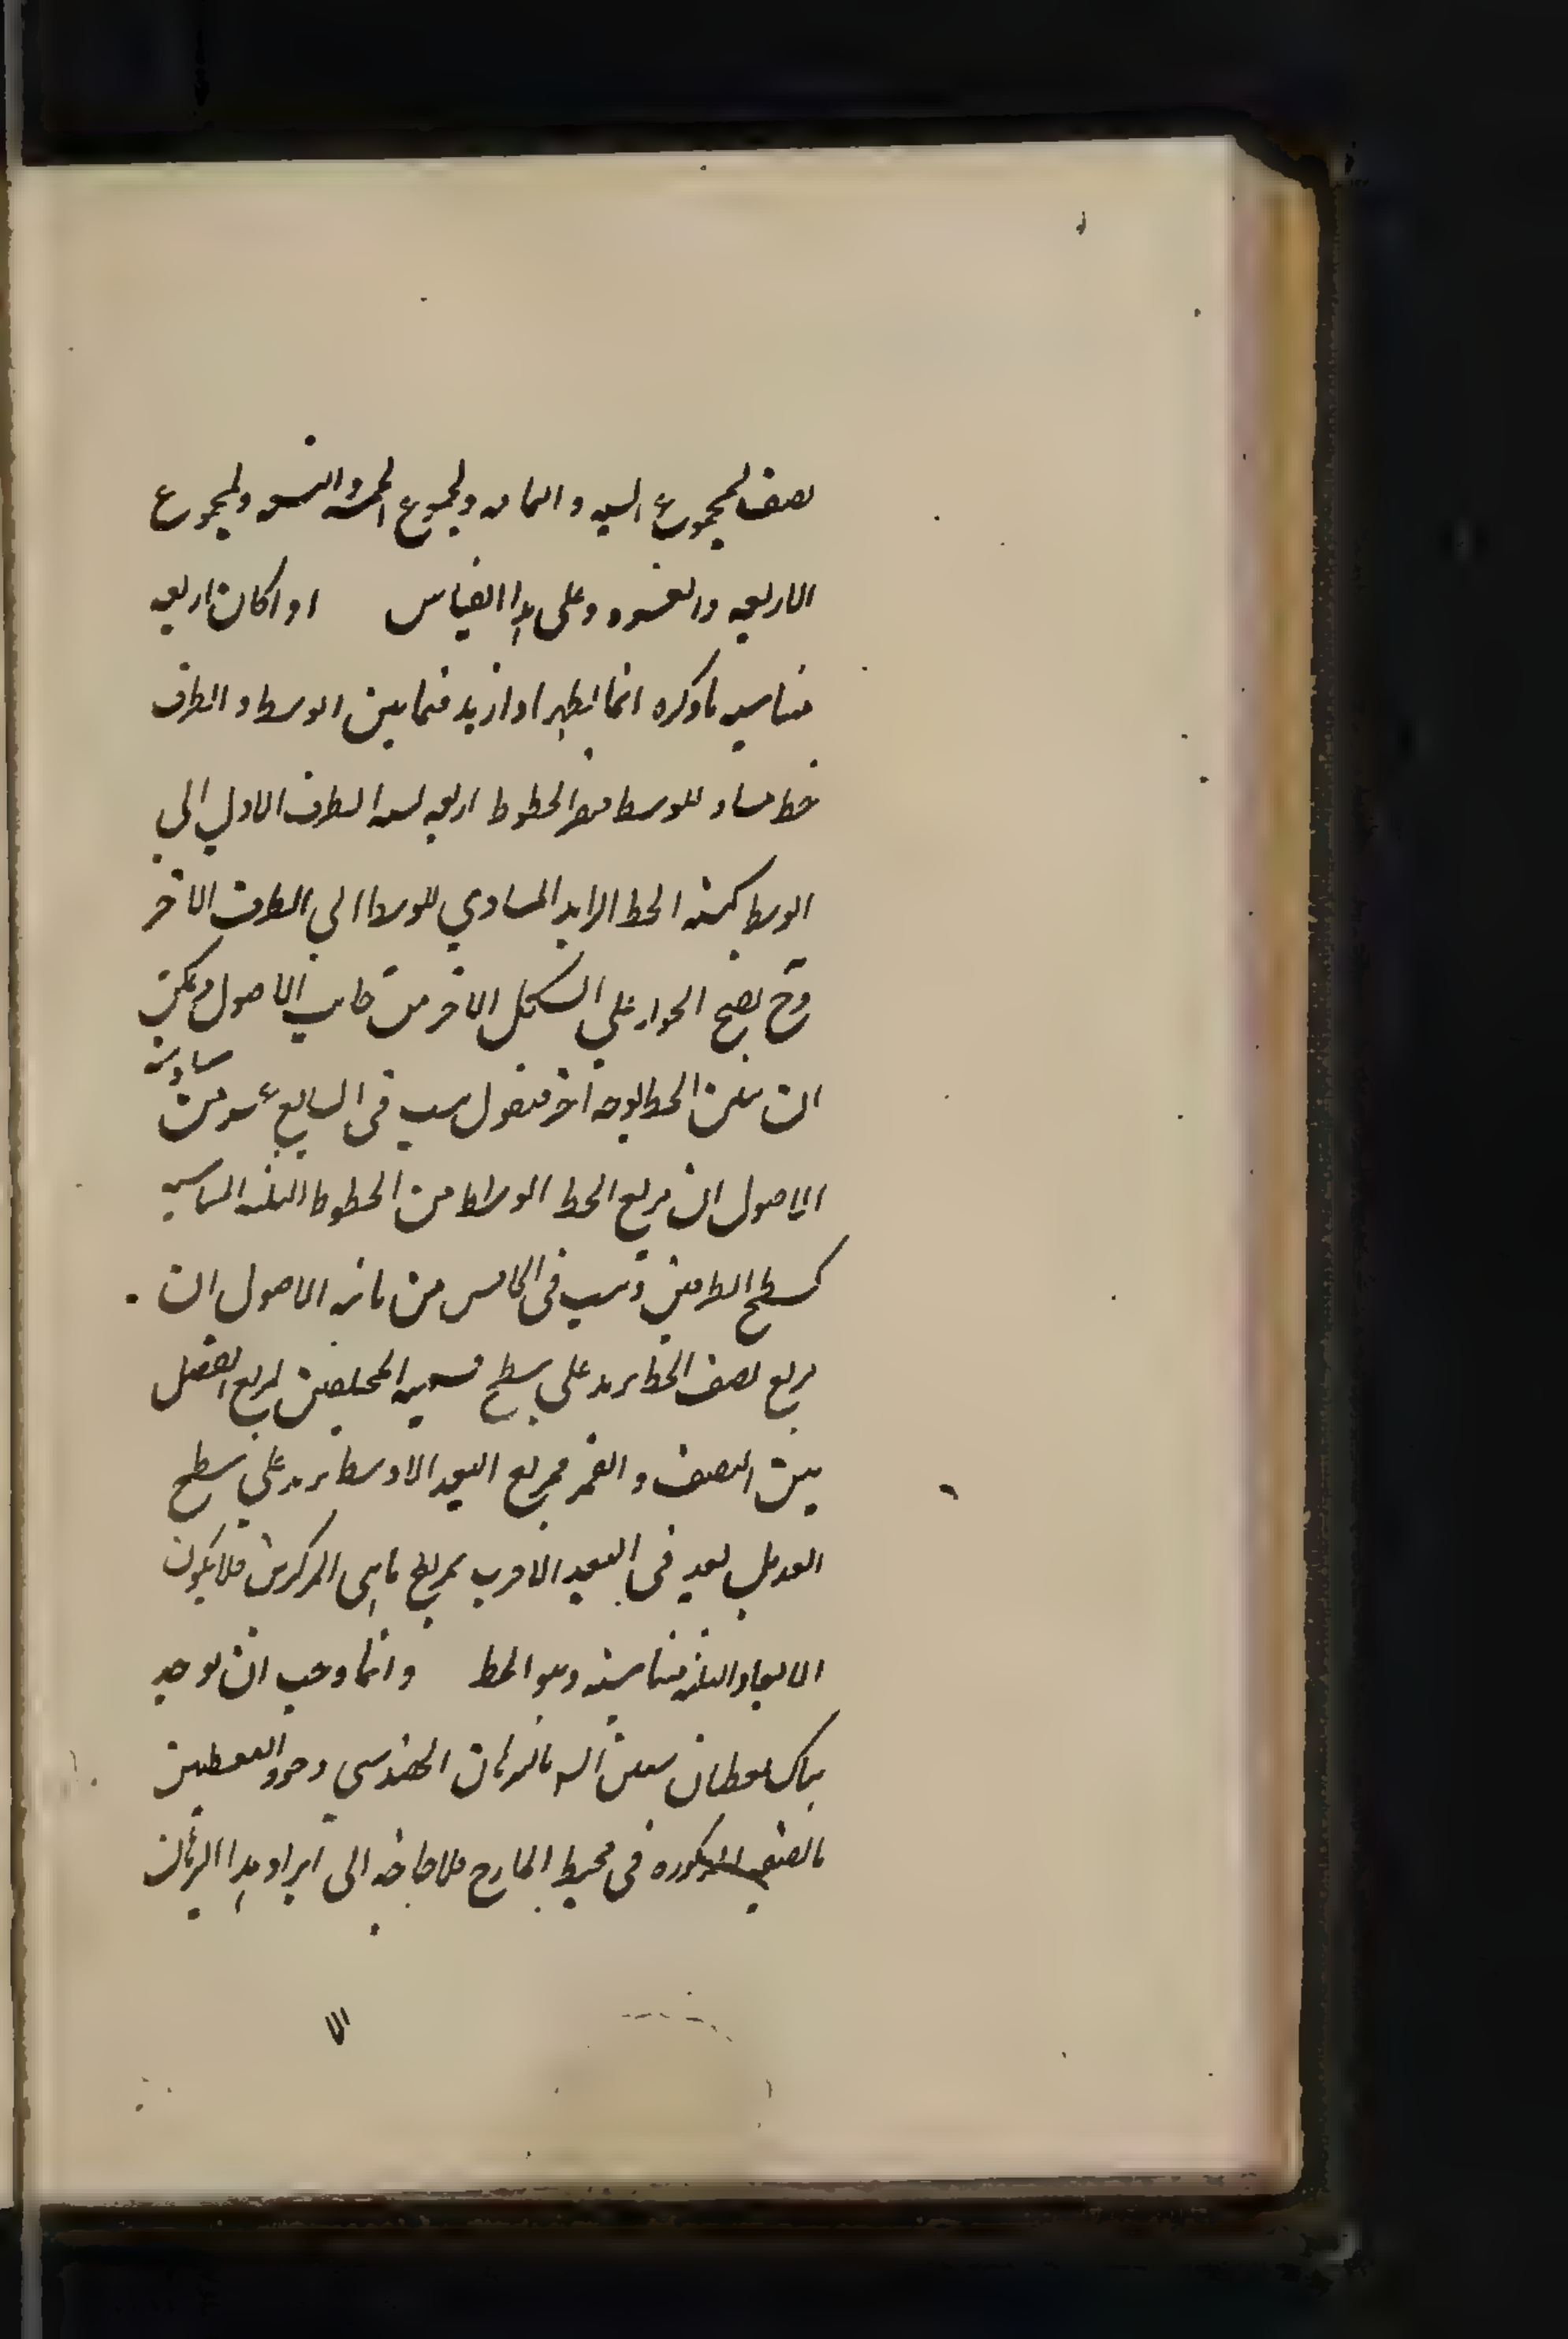 نصف لمجموع الستة والثمانية ولمجموع الخمسة والتسعة ولمجموع
الاربعة والعشرة وعلى هذا القياس اذا كان اربعة
متناسبة ما ذكره انما يظهر اذا ازيد فيما بين الوسط والطرف
خط مساو للوسط فيصير الخطوط اربعة نسبة الطرف الاول الى
الوسط كنسبة الخط الزايد المساوي للوسط الى الطرف الاخر
وح يصح الحوار على الشكل الاخر من الاصول ويمكن
ان الخط بوجه اخر فنقول تبين في السابع عشر من سادسة
الاصول ان مربع الخط الوسط من الخطوط الثلثة المتناسبة
كسطح الطرفين وتبين في الخامس من ثانية الاصول ان
مربع نصف الخط يزيد على سطح قسميه المختلفين بمربع الفضل
بين النصف والقسم فمربع البعد الاوسط يزيد على سطح
البعد الابعد في البعد الاقرب بمربع ما بين المركزين فلا يكون
الابعاد الثلثة متناسبة وهو المط وانما وجب ان يوجد
هناك نقطتان البرهان الهندسي وجود النقطتين
بالصفة المذكورة في محيط الخارج فلا حاجة الى ايراد هذا البرهان
الا